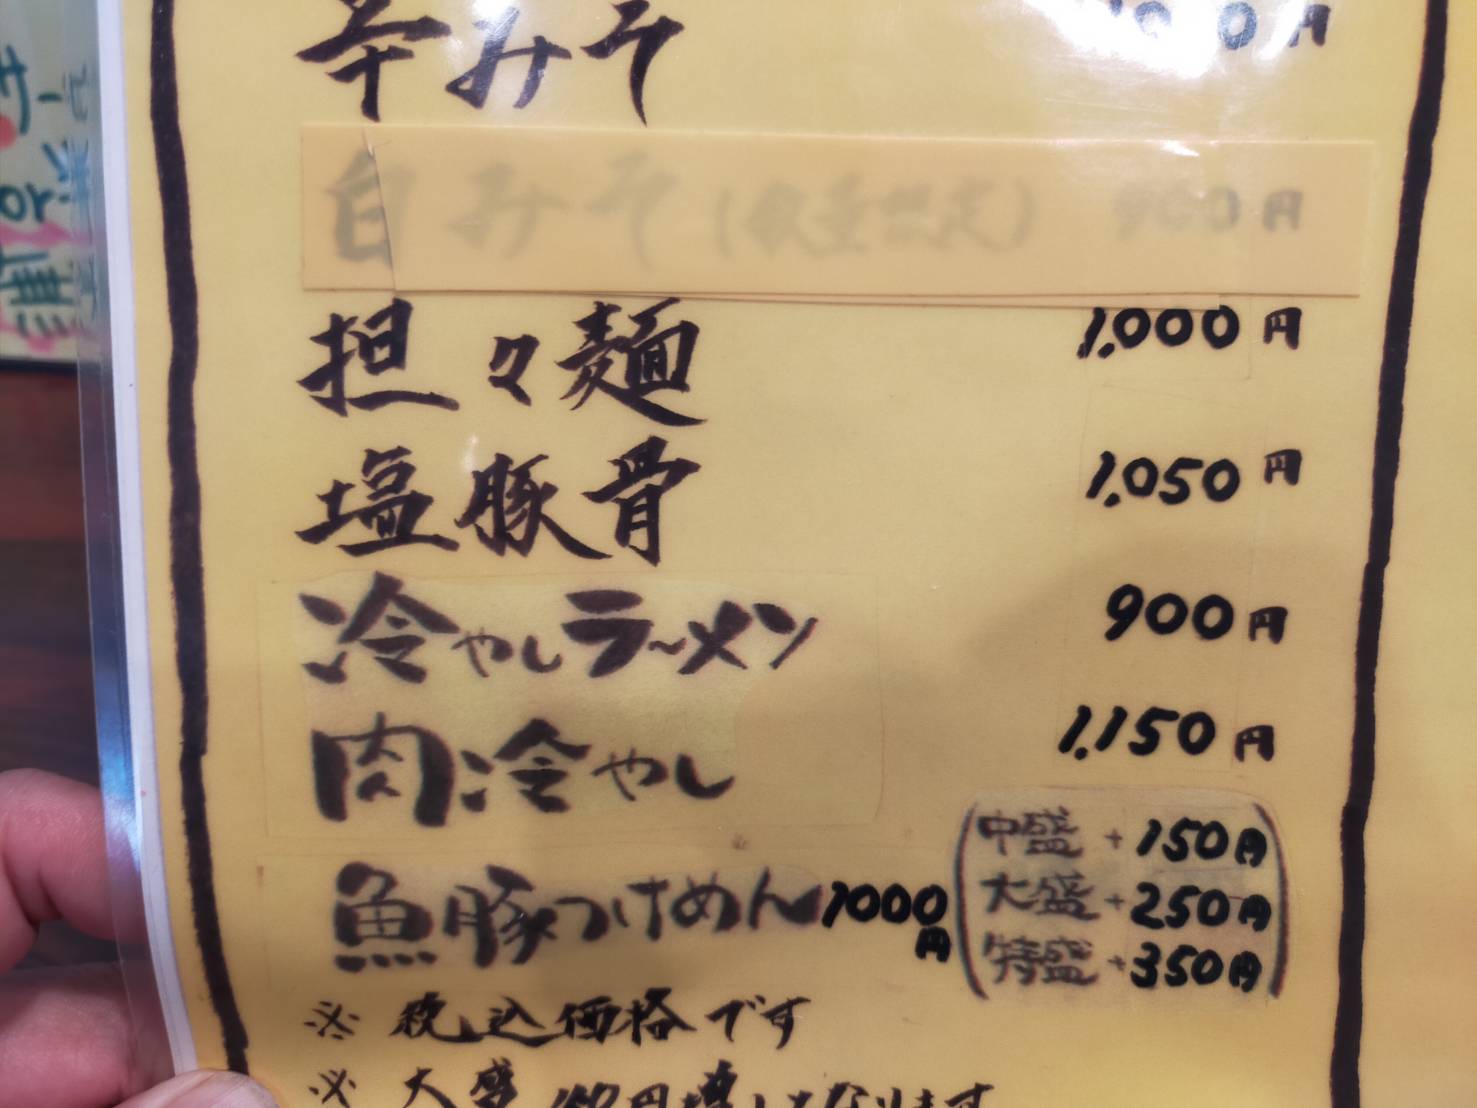 辛みそ
白みそ(数量限定) 900円
担々麺 1,000円
塩豚骨 1,050円
冷やしラーメン 900円
肉冷やし 1,150円
魚豚つけめん 1000円
中盛+150円
大盛+250円
特盛+350円
※税込価格です
※大盛